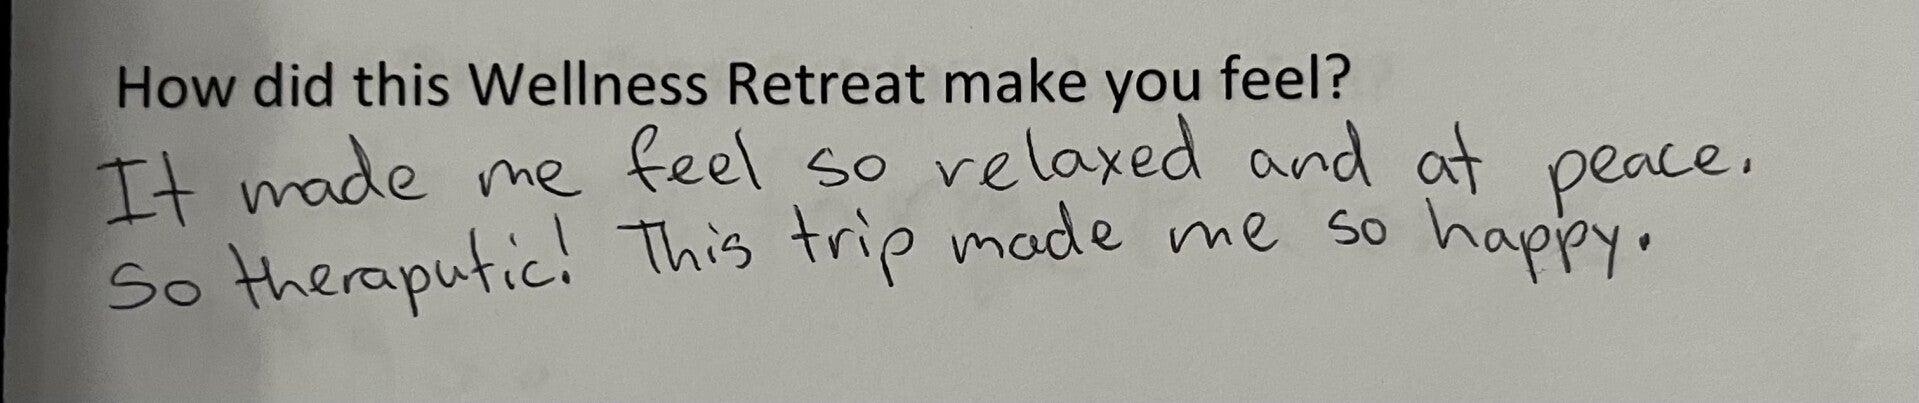 How did this Wellness Retreat make you feel?
It made me feel so relaxed and at peace.
So theraputic! This trip made me so happy.